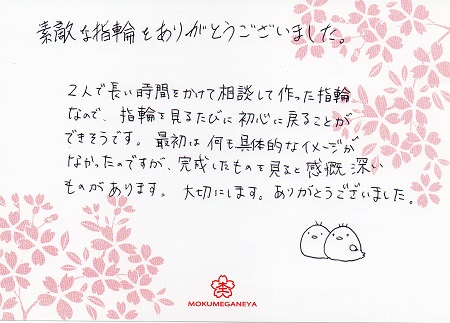 素敵な指輪をありがとうございました。
2人で長い時間をかけて相談して作った指輪
なので、指輪を見るたびに初心に戻ることが
できそうです。最初は何も具体的なイメージが
なかったのですが、完成したものを見ると感慨深い
ものがあります。大切にします。ありがとうございました。
MOKUMEGANEYA